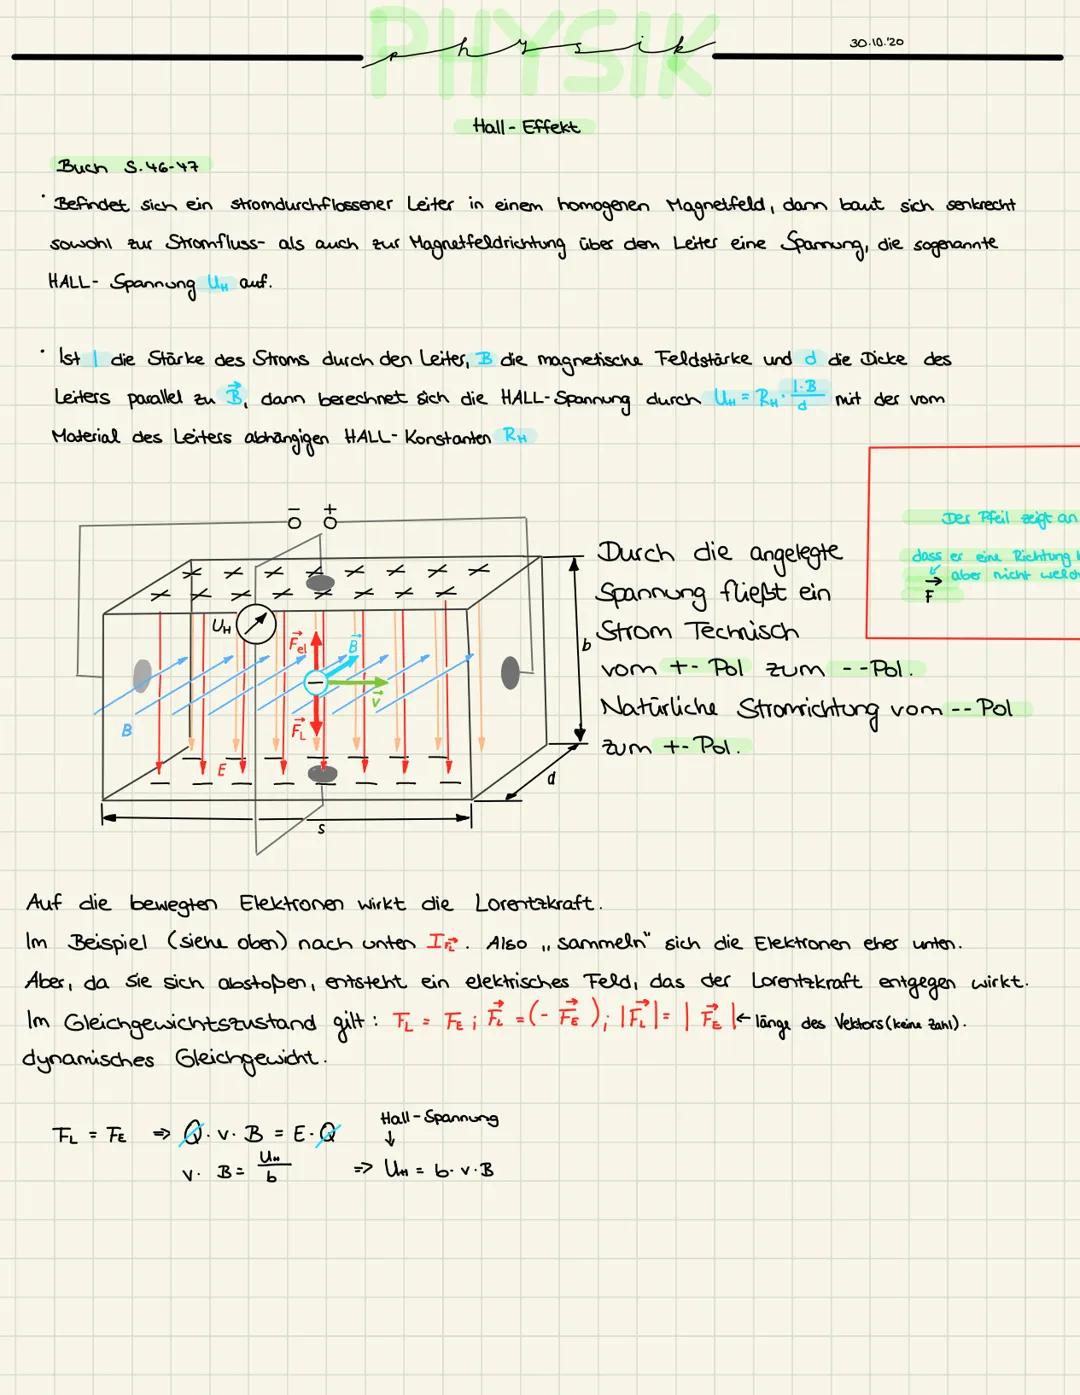 PHYSIK
physik
30.10.'20
Hall-Effekt
Buch S.46-47
· Befindet sich ein stromdurchflossener Leiter in einem homogenen Magnetfeld, dann baut sich senkrecht
sowohl zur Stromfluss- als auch zur Magnetfeldrichtung über dem Leiter eine Spannung, die sogenannte
HALL-Spannung U_H auf.
· Ist I die Stärke des Stroms durch den Leiter, B die magnetische Feldstärke und d die Dicke des
Leiters parallel zu B⃗, dann berechnet sich die HALL-Spannung durch U_H = R_H · I·B/d mit der vom
Material des Leiters abhängigen HALL-Konstanten R_H
Der Pfeil zeigt an
dass er eine Richtung
aber nicht welch
F⃗
- +
U_H
F⃗_el
B⃗
v⃗
F⃗_L
B
E
b
d
s
Durch die angelegte
Spannung fließt ein
Strom Technisch
vom +-Pol zum --Pol.
Natürliche Stromrichtung vom --Pol
zum +-Pol.
Auf die bewegten Elektronen wirkt die Lorentzkraft.
Im Beispiel (siehe oben) nach unten I F⃗_L. Also „sammeln" sich die Elektronen eher unten.
Aber, da sie sich abstoßen, entsteht ein elektrisches Feld, das der Lorentzkraft entgegen wirkt.
Im Gleichgewichtszustand gilt: F_L = F_E ; F⃗_L = (- F⃗_E ); |F⃗_L| = | F⃗_E | ← länge des Vektors (keine Zahl).
dynamisches Gleichgewicht.
F_L = F_E => Q · v · B = E · Q
Hall-Spannung
↓
v · B = U_H/b => U_H = b · v · B